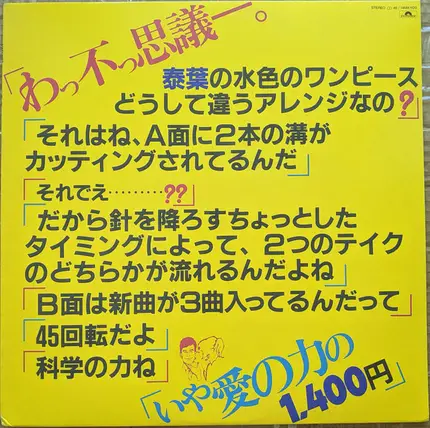 「わっ不っ思議ー。
泰葉の水色のワンピース
どうして違うアレンジなの?」
「それはね、A面に2本の溝が
カッティングされてるんだ」
「それでえ………??」
「だから針を降ろすちょっとした
タイミングによって、2つのテイク
のどちらかが流れるんだよね」
「B面は新曲が3曲入ってるんだって」
「45回転だよ」
「科学の力ね」
「いや愛の力の
1,400円」